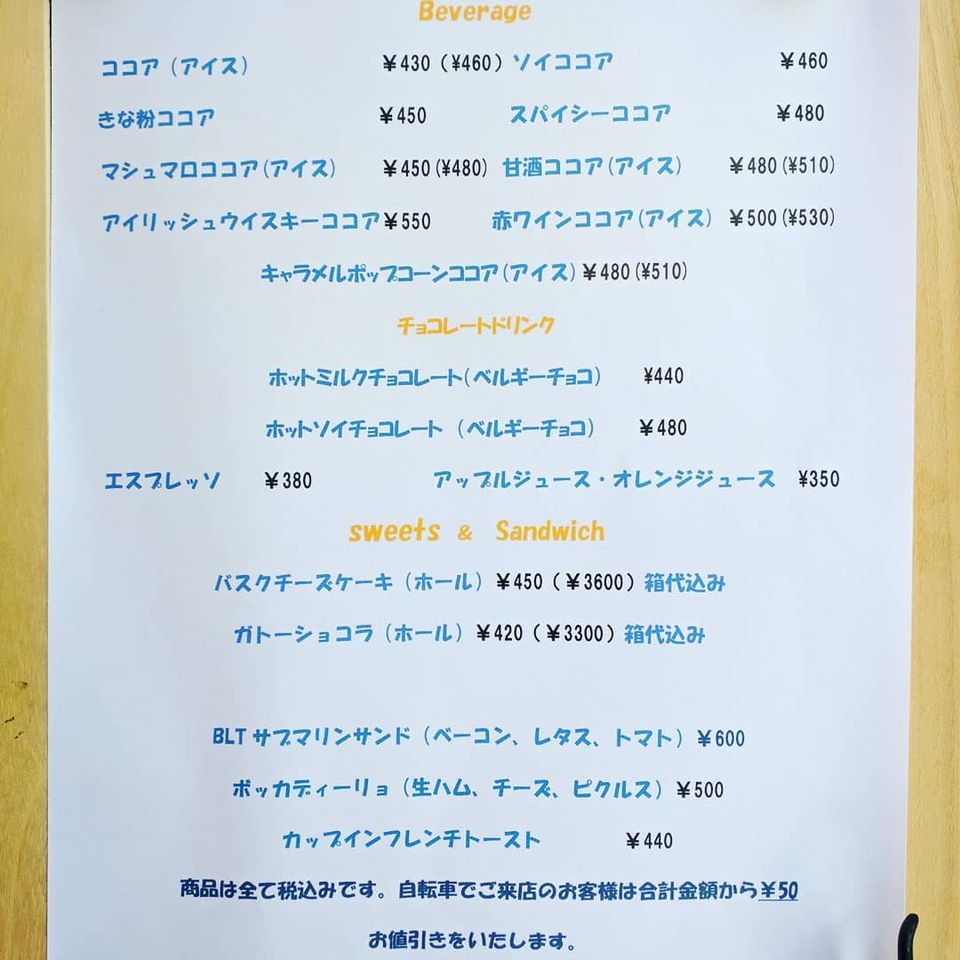 Beverage
ココア（アイス） ￥430（¥460）ソイココア ￥460
きな粉ココア ￥450 スパイシーココア ￥480
マシュマロココア(アイス) ￥450(¥480) 甘酒ココア(アイス) ￥480(¥510)
アイリッシュウイスキーココア￥550 赤ワインココア(アイス) ￥500(¥530)
キャラメルポップコーンココア(アイス)￥480(¥510)
チョコレートドリンク
ホットミルクチョコレート(ベルギーチョコ) ¥440
ホットソイチョコレート （ベルギーチョコ） ￥480
エスプレッソ ￥380 アップルジュース・オレンジジュース ¥350
sweets ＆ Sandwich
バスクチーズケーキ（ホール）￥450（￥3600）箱代込み
ガトーショコラ（ホール）￥420（￥3300）箱代込み
BLTサブマリンサンド（ベーコン、レタス、トマト）￥600
ボッカディーリョ（生ハム、チーズ、ピクルス）￥500
カップインフレンチトースト ￥440
商品は全て税込みです。自転車でご来店のお客様は合計金額から￥50
お値引きをいたします。